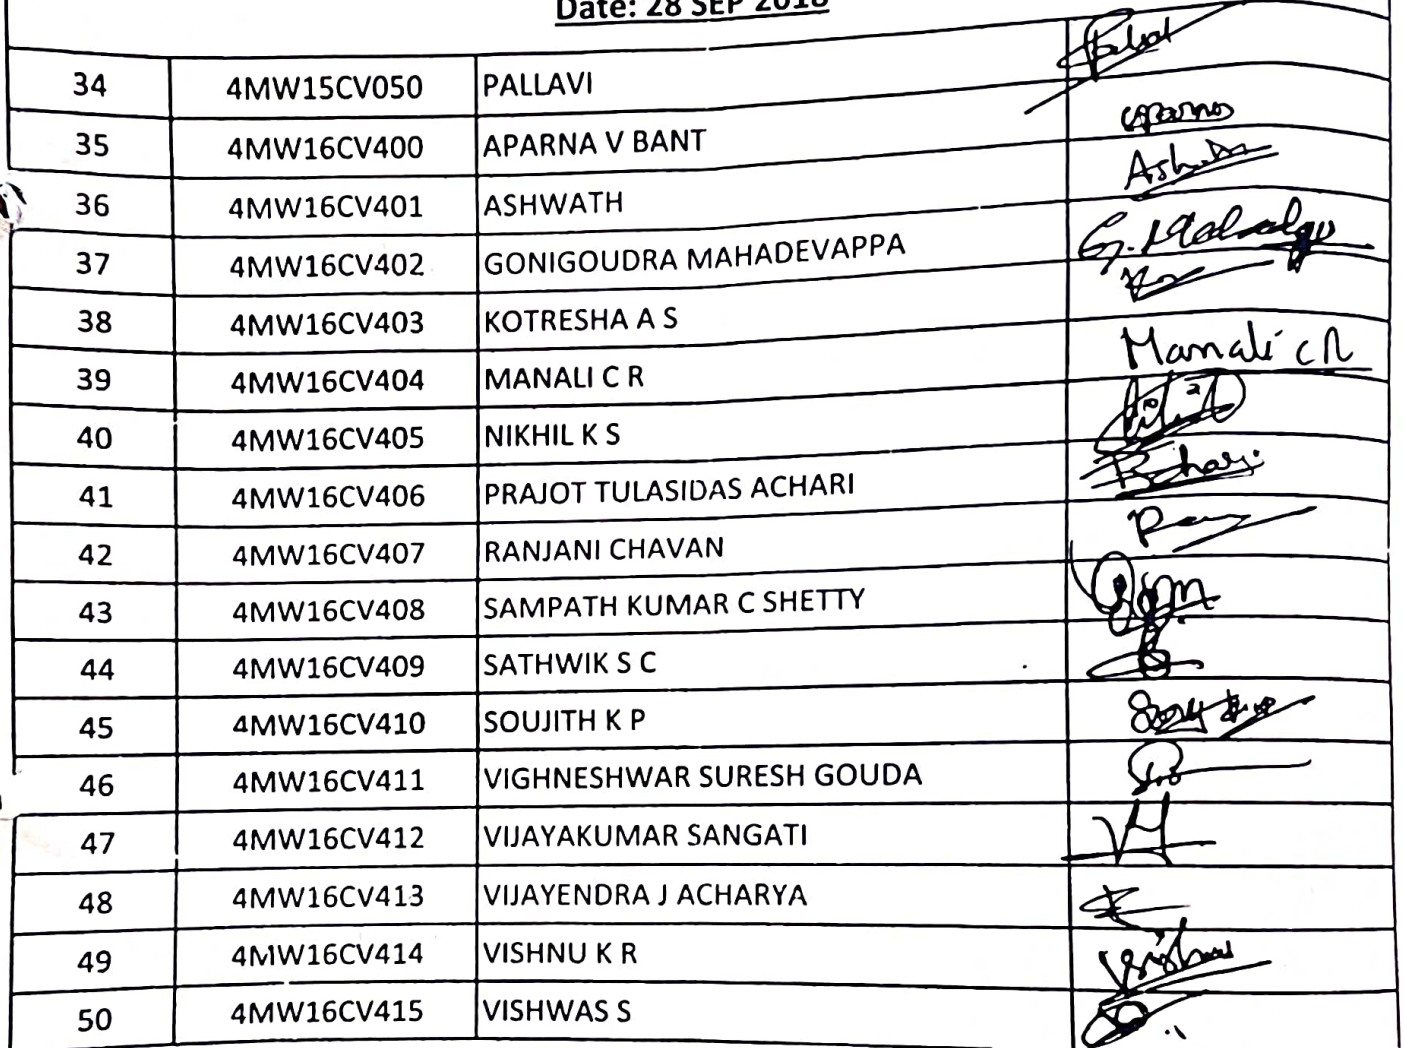 Date: 28 SEP 2018
34 4MW15CV050 PALLAVI
35 4MW16CV400 APARNA V BANT Aparna
36 4MW16CV401 ASHWATH
37 4MW16CV402 GONIGOUDRA MAHADEVAPPA
38 4MW16CV403 KOTRESHA A S
39 4MW16CV404 MANALI C R Manali C R
40 4MW16CV405 NIKHIL K S
41 4MW16CV406 PRAJOT TULASIDAS ACHARI
42 4MW16CV407 RANJANI CHAVAN
43 4MW16CV408 SAMPATH KUMAR C SHETTY
44 4MW16CV409 SATHWIK S C
45 4MW16CV410 SOUJITH K P
46 4MW16CV411 VIGHNESHWAR SURESH GOUDA
47 4MW16CV412 VIJAYAKUMAR SANGATI
48 4MW16CV413 VIJAYENDRA J ACHARYA
49 4MW16CV414 VISHNU K R Vishnu
50 4MW16CV415 VISHWAS S